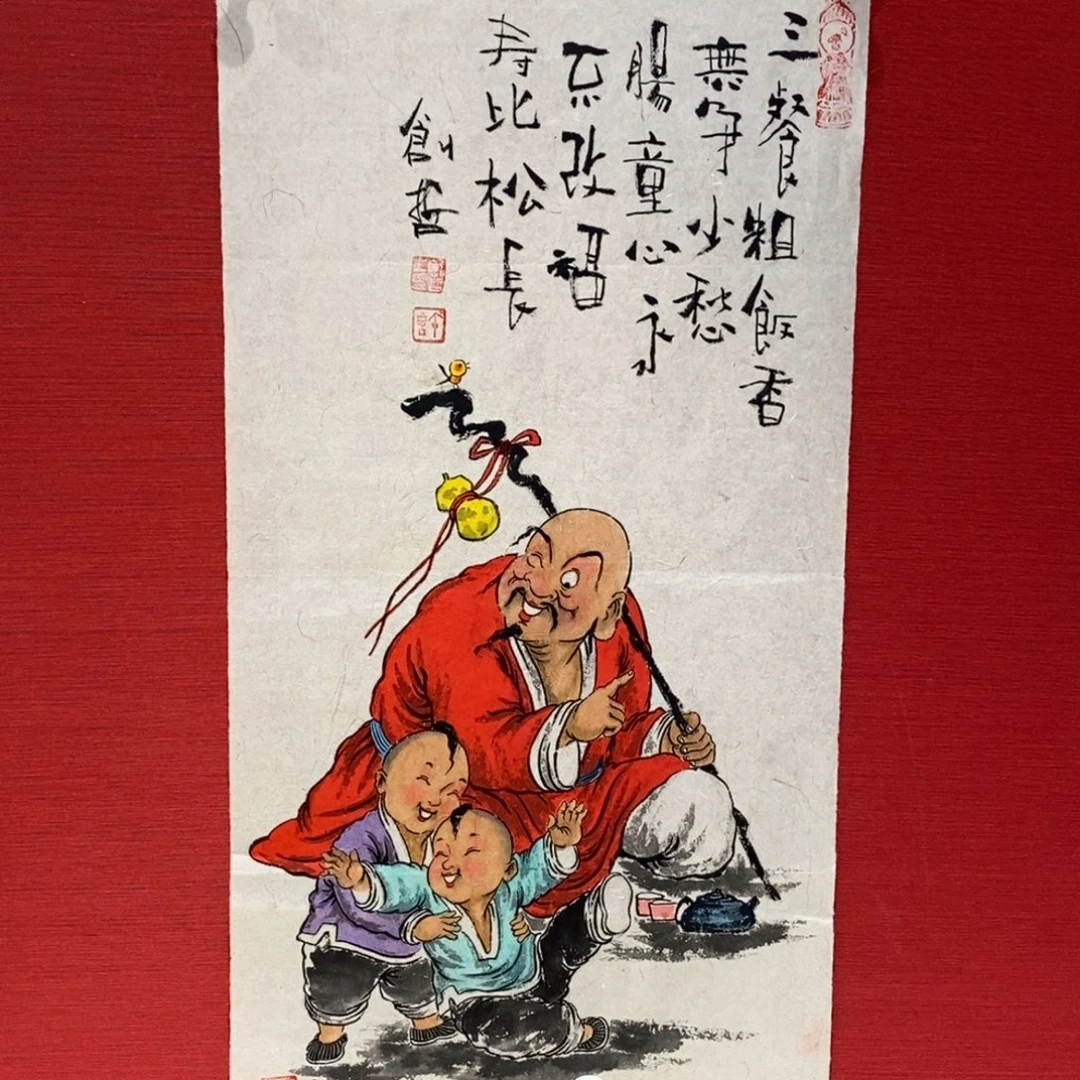 三餐粗飯香
無爭少愁
腸童心永
不改福
寿比松長
創哲